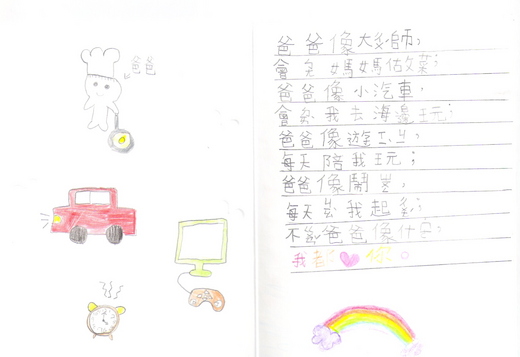 爸爸
爸爸像大廚師，
會幫媽媽做菜；
爸爸像小汽車，
會載我去海邊玩；
爸爸像遊戲機，
每天陪我玩；
爸爸像鬧鐘，
每天叫我起床；
不論爸爸像什麼，
我都❤你。